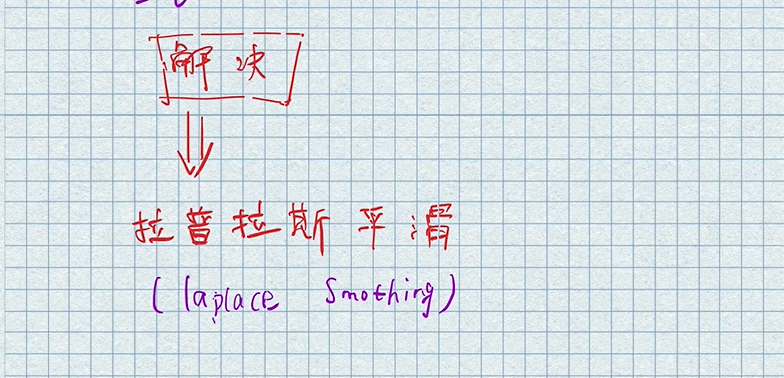 解决
拉普拉斯平滑
(laplace Smothing)